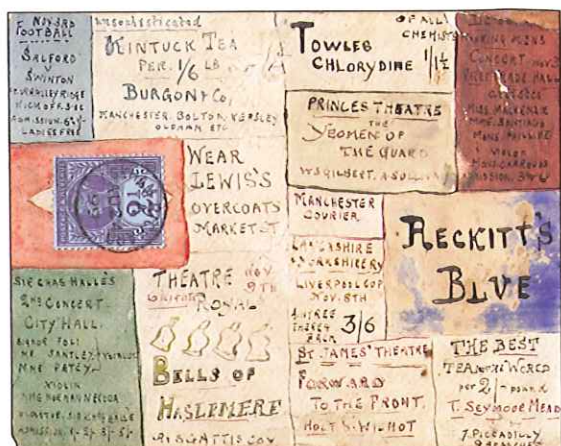 F NOV 3RD
FOOTBALL
SALFORD
V
SWINTON
KICK OFF 3.15
ADMISSION 6D
LADIES FREE
Unsophisticated
KINTUCK TEA
PER. 1/6 LB
BURGON & Co,
MANCHESTER. BOLTON. KEARSLEY
OLDHAM ETC
OF ALL
CHEMISTS
TOWLES
CHLORYDINE 1/1½
CONCERT NOV 3
FREE TRADE HALL
MISS MACKENZIE
VIOLIN
PRINCES THEATRE
THE
YEOMEN OF
THE GUARD
W.S. GILBERT. A. SULLIVAN
WEAR
LEWIS'S
OVERCOATS
MARKET ST
MANCHESTER
COURIER.
LANCASHIRE
& YORKSHIRE RY
LIVERPOOL CUP
NOV. 8TH
AINTREE
THERE &
BACK
3/6
RECKITT'S
BLUE
SIR CHAS HALLE'S
2ND CONCERT
CITY HALL.
MR SANTLEY
MME PATEY
VOCALISTS
VIOLIN
MME NORMAN NERUDA
THEATRE NOV
9TH
ROYAL
BELLS OF
HASLEMERE
ST. JAMES' THEATRE
FORWARD
TO THE FRONT.
HOLT & WILMOT
THE BEST
TEA IN THE WORLD
PER 2/- POUND
T. SEYMOUR MEAD
7. PICCADILLY
& BRANCHES